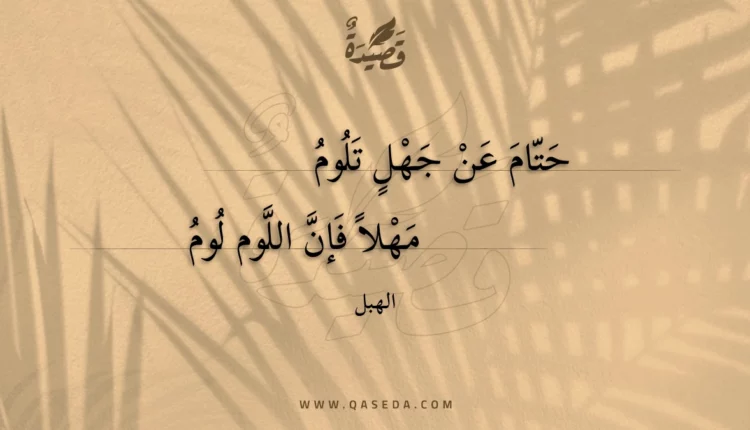 قَصِيدَةٌ
حَتّامَ عَنْ جَهْلٍ تَلُومُ
مَهْلاً فَإنَّ اللَّوم لُومُ
الهبل
WWW.QASEDA.COM